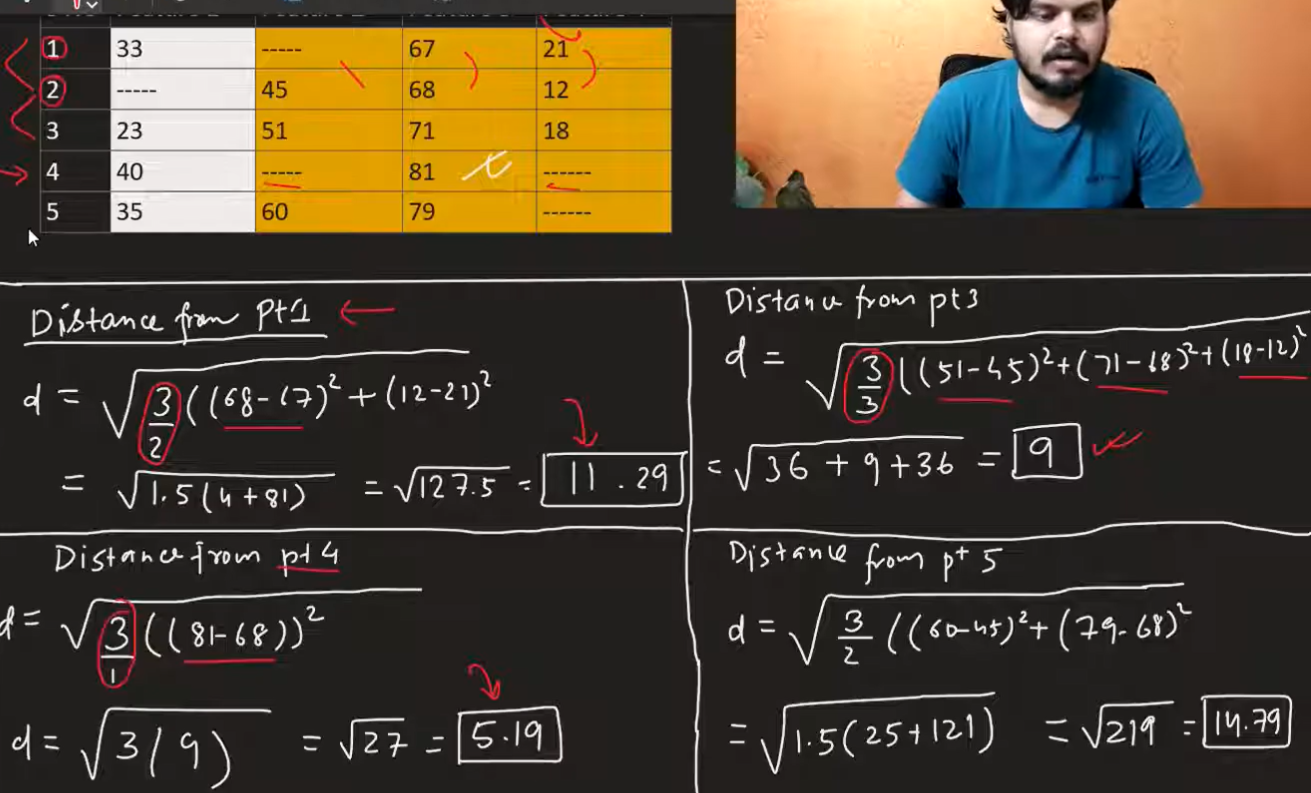 1 33 ----- 67 21
2 ----- 45 68 12
3 23 51 71 18
4 40 ----- 81 ------
5 35 60 79 ------
Distance from Pt1
d = √(3/2 ((68-67)² + (12-21)²
= √1.5(4+81) = √127.5 = 11.29
Distance from pt3
d = √(3/3 ((51-45)² + (71-68)² + (18-12)²
= √36 + 9 + 36 = 9
Distance from pt 4
d = √(3/1 ((81-68))²
d = √3(9) = √27 = 5.19
Distance from pt 5
d = √(3/2 ((60-45)² + (79-68)²
= √1.5(25+121) = √219 = 14.79